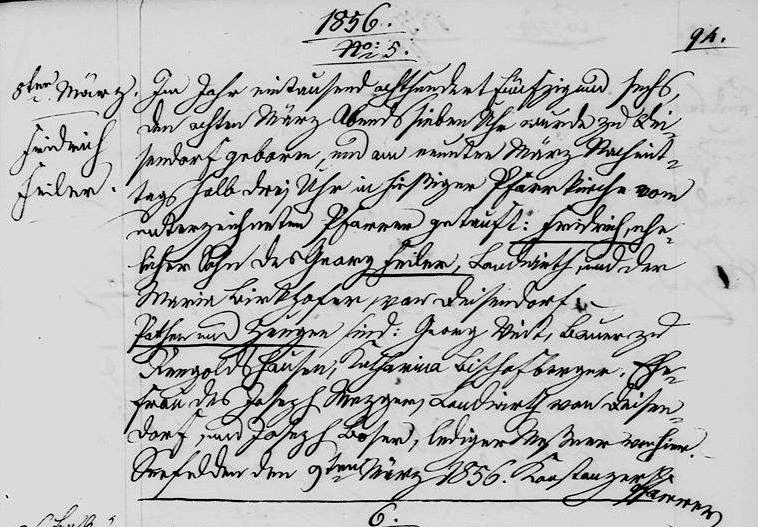 1856.
94.
No: 5.
8ten März.
Friedrich
Heiler.
Im Jahr eintausend achthundert fünfzig und sechs,
den achten März Abends sieben Uhr wurde zu Dei-
sendorf geboren, und am neunten März Nachmit-
tags halb drei Uhr in hiesiger Pfarrkirche vom
unterzeichneten Pfarrer getauft: Friedrich, ehe-
licher Sohn des Georg Heiler, Landwirth, und der
Maria Birkhofer, von Deisendorf.
Pathen und Zeugen sind: Georg Veit, Bauer zu
Rengoldshausen, Katharina Bischofberger, Ehe-
frau des Joseph Metzger, Landwirth von Deisen-
dorf, und Joseph Boser, lediger Meßmer von hier.
Seefelden den 9ten März 1856. Konstanzer
Pfarrer
6.